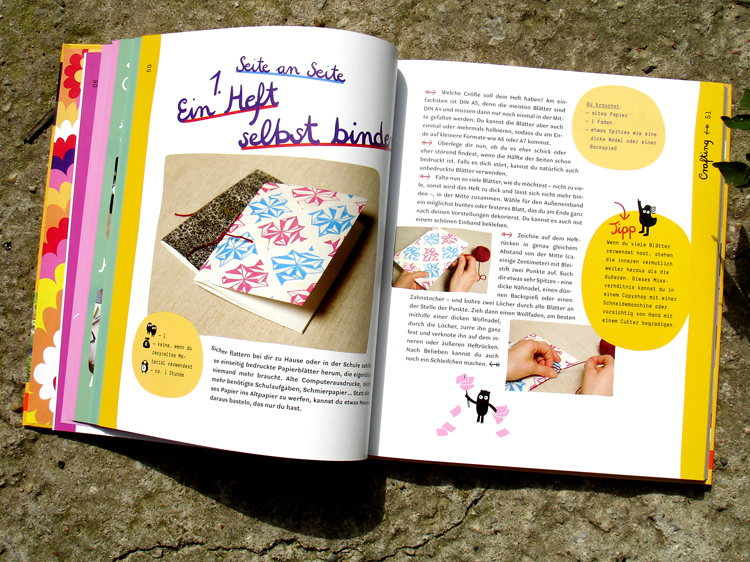 50
Seite an Seite
1.
Ein Heft
selbst binde
– 1
– keine, wenn du
recyceltes Ma-
terial verwendest
– ca. 1 Stunde
Sicher flattern bei dir zu Hause oder in der Schule
se einseitig bedruckte Papierblätter herum, die eigentlich
niemand mehr braucht. Alte Computerausdrucke, nicht
mehr benötigte Schulaufgaben, Schmierpapier... Statt
ses Papier ins Altpapier zu werfen, kannst du etwas Neues
daraus basteln, das nur du hast.
Welche Größe soll dein Heft haben? Am ein-
fachsten ist DIN A5, denn die meisten Blätter sind
DIN A4 und müssen dann nur noch einmal in der Mit-
te gefaltet werden. Du kannst die Blätter aber auch
einmal oder mehrmals halbieren, sodass du am En-
de auf kleinere Formate wie A6 oder A7 kommst.
Überlege dir nun, ob du es eher schick oder
eher störend findest, wenn die Hälfte der Seiten schon
bedruckt ist. Falls es dich stört, kannst du natürlich auch
unbedruckte Blätter verwenden.
Falte nun so viele Blätter, wie du möchtest – nicht zu vie-
le, sonst wird das Heft zu dick und lässt sich nicht mehr bin-
den –, in der Mitte zusammen. Wähle für den Außeneinband
ein möglichst buntes oder festeres Blatt, das du am Ende ganz
nach deinen Vorstellungen dekorierst. Du kannst es auch mit
einem schönen Einband bekleben.
Zeichne auf dem Heft-
rücken in genau gleichem
Abstand von der Mitte (ca.
einige Zentimeter) mit Blei-
stift zwei Punkte auf. Such
dir etwas sehr Spitzes – eine
dicke Nähnadel, einen dün-
nen Backspieß oder einen
Zahnstocher – und bohre zwei Löcher durch alle Blätter an
der Stelle der Punkte. Zieh dann einen Wollfaden, am besten
mithilfe einer dicken Wollnadel,
durch die Löcher, zurre ihn ganz
fest und verknote ihn auf dem in-
neren oder äußeren Heftrücken.
Nach Belieben kannst du auch
noch ein Schleifchen machen.
Du brauchst:
– altes Papier
– 1 Faden
– etwas Spitzes wie eine
dicke Nadel oder einen
Backspieß
Tipp
Wenn du viele Blätter
verwendet hast, stehen
die inneren vermutlich
weiter heraus als die
äußeren. Dieses Miss-
verhältnis kannst du in
einem Copyshop mit einer
Schneidemaschine oder
vorsichtig von Hand mit
einem Cutter begradigen.
Crafting 51